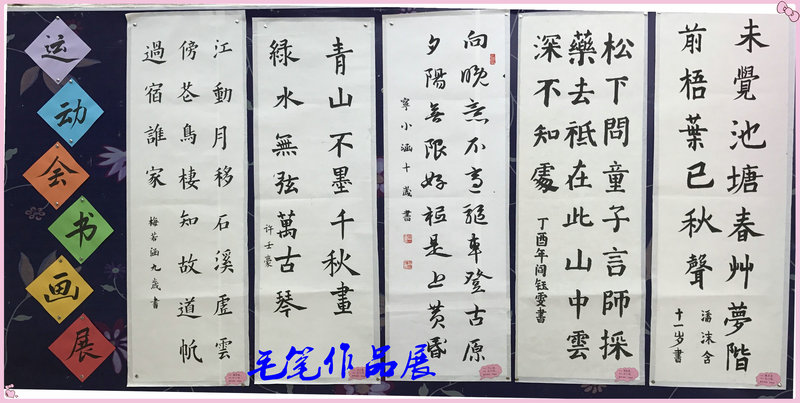 运动会书画展
未覺池塘春艸夢階
前梧葉已秋聲
潘沫含
十一岁書
松下問童子言師採
藥去祗在此山中雲
深不知處
丁酉年闫钰雯書
向晚意不適驅車登古原
夕陽無限好祗是近黄昏
寧小涵十歲書
青山不墨千秋畫
綠水無弦萬古琴
许士豪
江動月移石溪虛雲
傍苍鳥棲知故道帆
過宿誰家
梅若涵九歲書
毛笔作品展